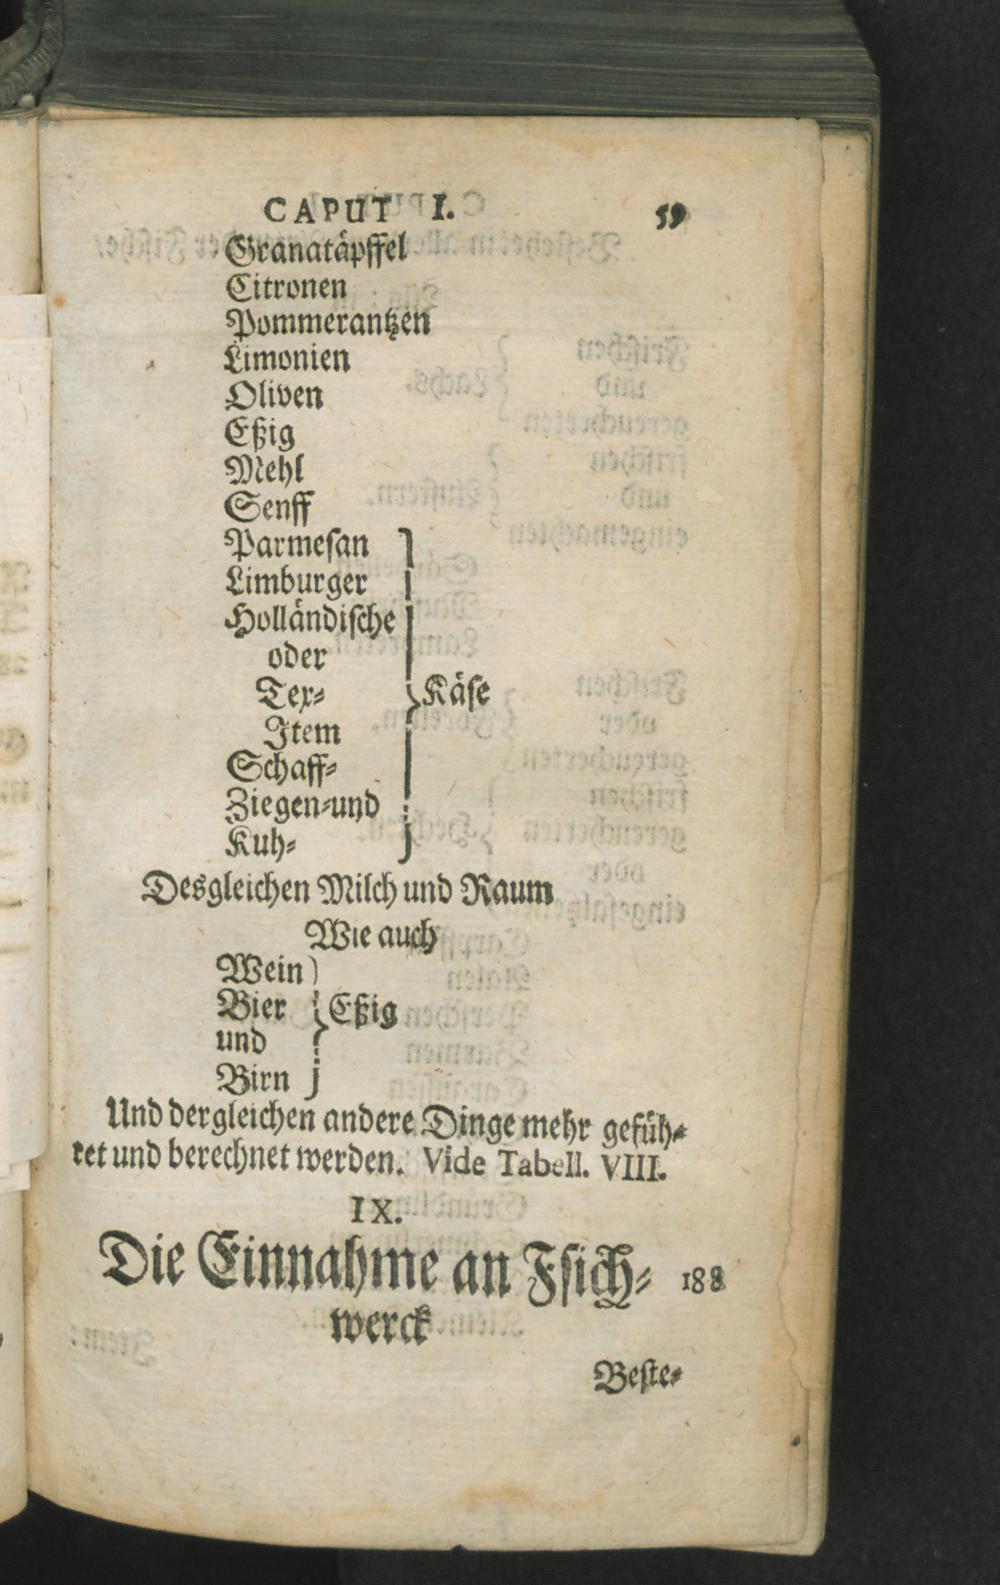 CAPUT I. 59
Granatäpffel
Citronen
Pommerantzen
Limonien
Oliven
Eßig
Mehl
Senff
Parmesan
Limburger
Holländische
oder
Tex-
Käse
Item
Schaff-
Ziegen-und
Kuh-
Desgleichen Milch und Raum
Wie auch
Wein
Bier
Eßig
und
Birn
Und dergleichen andere Dinge mehr gefüh-
ret und berechnet werden. Vide Tabell. VIII.
IX.
Die Einnahme an Fsich- 188
werck
Beste-